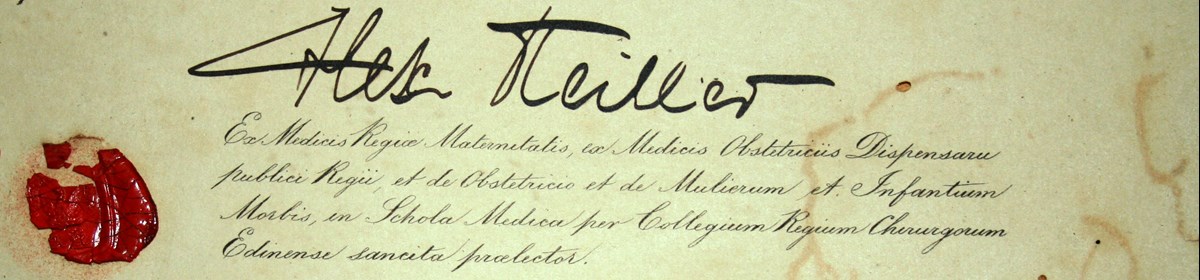 Alex Keiller
Ex Medicis Regiæ Maternitatis, ex Medicis Obstetriciis Dispensarii
publici Regii, et de Obstetricio et de Mulierum et Infantium
Morbis, in Schola Medica per Collegium Regium Chirurgorum
Edinense sancita prælector.